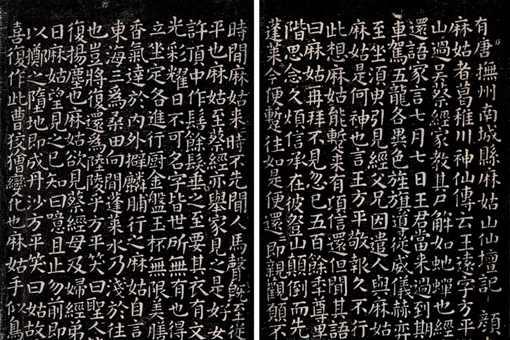 有唐撫州南城縣麻姑山仙壇記顏
麻姑者葛稚川神仙傳云王遠字方平
山過吳蔡經家教其尸解如虵蟬也經
還語家言七月七日王君當來過到期
車駕五龍各異色旌旗導從威儀赫弈
至坐須臾引見經父兄因遣人與麻姑
麻姑是何神也言王方平敬報久不行
此想麻姑能暫來有頃信還但聞其語
曰麻姑再拜不見忽已五百餘年尊卑
階思念久煩信承在彼登山顛倒而先
蓬萊今便暫往如是便還即親觀願不
時間麻姑來來時不先聞人馬聲既至從
平也麻姑至蔡經亦舉家見之是好女
許頂中作髻餘髮垂之至要其衣有文
光彩耀日不可名字皆世所無有也得
立坐定各進行廚金盤玉杯無限美膳
香氣達於內外擗麟脯行之麻姑自言
東海三為桑田向間蓬萊水乃淺於往
也豈將復還為陸陵乎方平笑曰聖人
復揚塵也麻姑欲見蔡經母及婦經弟
日麻姑望見之已知曰噫且止勿前即
以擲之墮地即成丹沙方平笑曰姑故
喜復作此曹狡獪變化也麻姑手似鳥